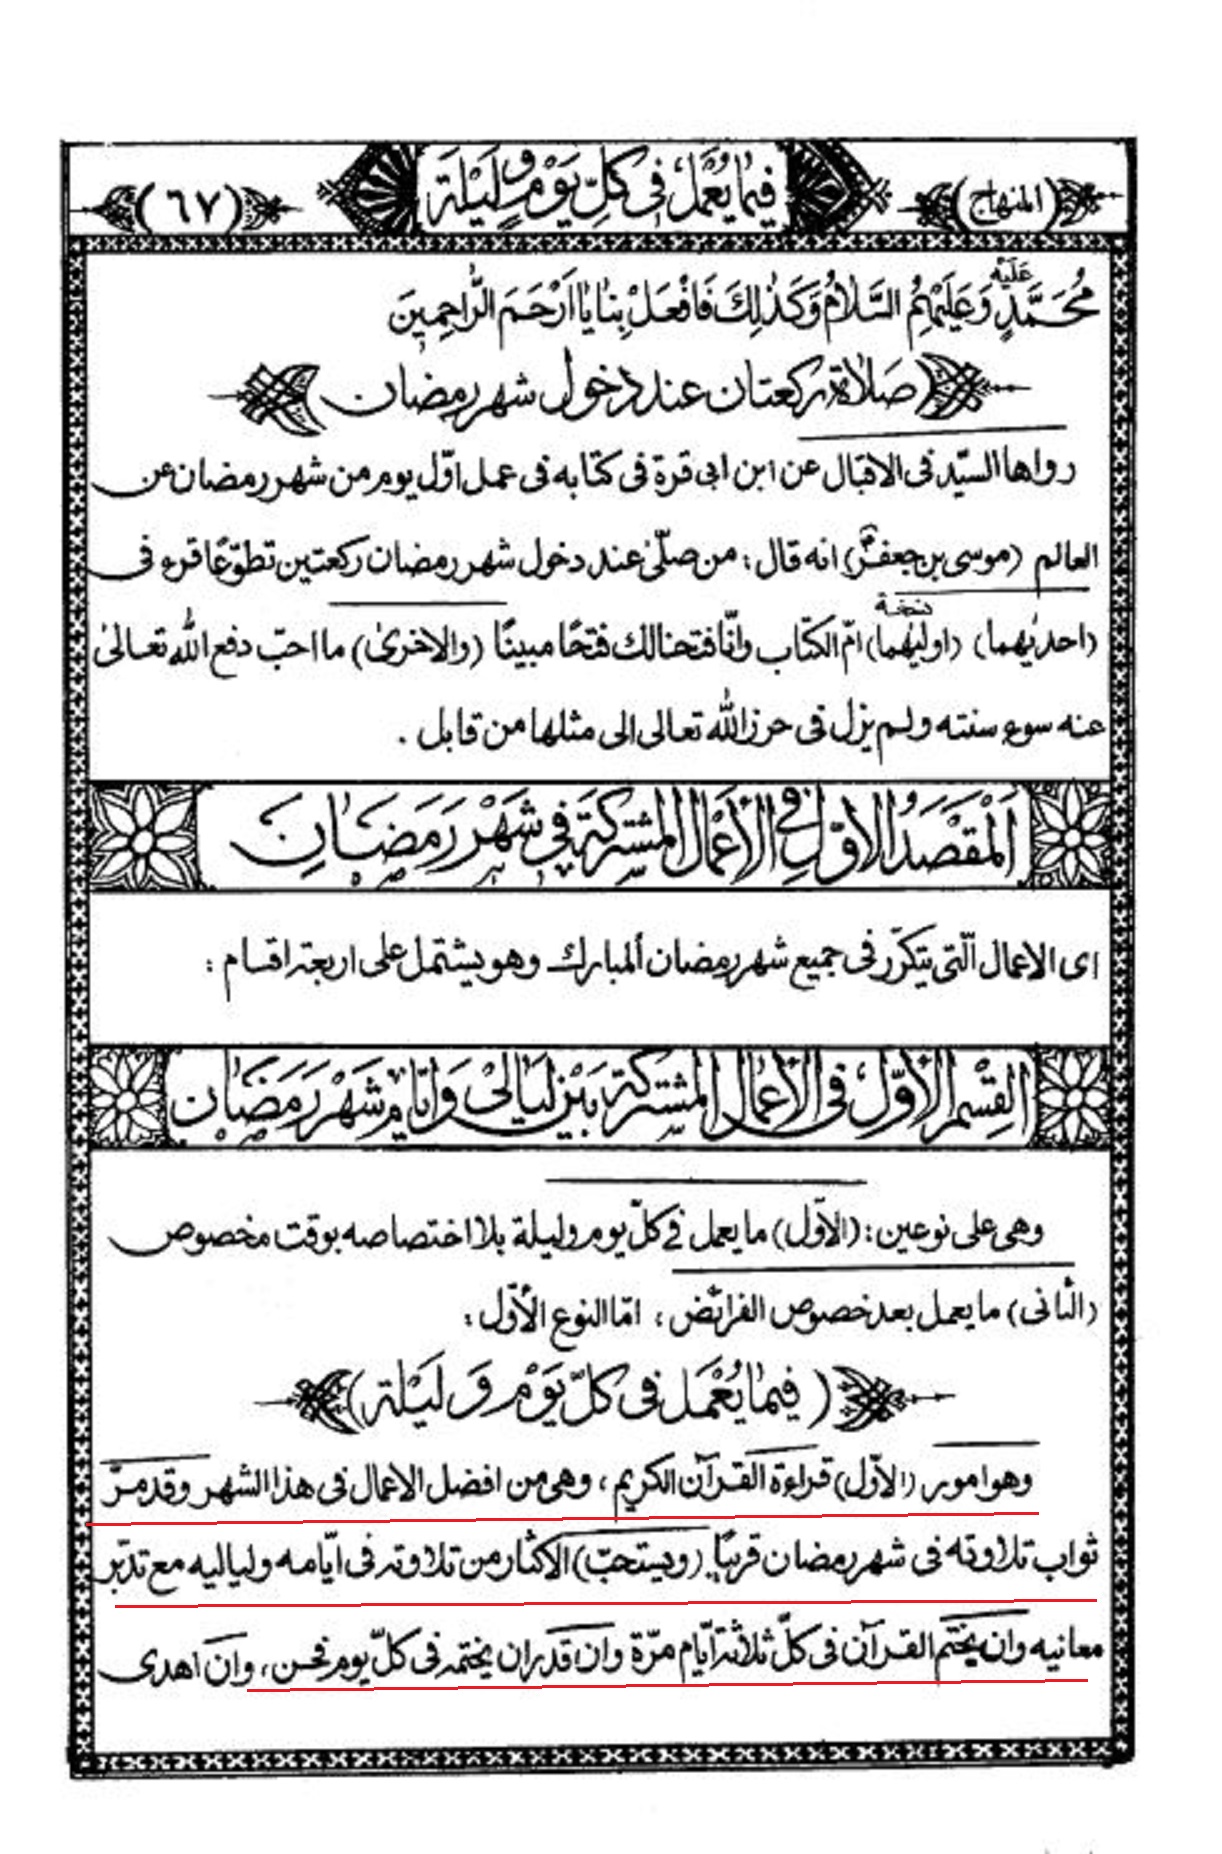 (المنهاج) فيما يعمل في كل يوم وليلة (٦٧)
عليه
مُحَمَّدٍ وَعَلَيْهِمُ السَّلَامُ وَكَذٰلِكَ فَافْعَلْ بِنٰا يٰا اَرْحَمَ الرّٰاحِمِينَ
(صلاة ركعتان عند دخول شهر رمضان)
رواها السيّد فى الاقبال عن ابن ابى قرة فى كتابه فى عمل اوّل يوم من شهر رمضان عن
العالم (موسى بن جعفر) انه قال: من صلّى عند دخول شهر رمضان ركعتين تطوّعًا قرء فى
نسخة
(احديهما) (اوليهما) امّ الكتاب وانّا فتحنا لك فتحًا مبينًا (والاخرىٰ) ما احبّ دفع الله تعالىٰ
عنه سوء سنته ولم يزل فى حرز الله تعالى الى مثلها من قابل .
اَلْمَقْصَدُ الاوّل في الاَعْمال المشتركة في شَهْر رَمَضٰانِ
اى الاعمال الّتى يتكرّر فى جميع شهر رمضان ألمبارك وهو يشتمل على اربعة اقسام :
القِسْم الاَوّل فى الاَعْمال المشتركة بَيْن لَيٰالى وَايّام شَهْر رَمَضٰان
وهى على نوعين: (الاوّل) ما يعمل في كلّ يوم وليلة بلا اختصاصه بوقت مخصوص
(الثانى) ما يعمل بعد خصوص الفرائض، امّا النوع الأوّل:
(فيمٰا يُعْمَل فى كلّ يَوْم وَ لَيْلة)
وهو امور (الاوّل) قراءة القرآن الكريم، وهى من افضل الاعمال فى هذا الشهر وقد مرّ
ثواب تلاوته فى شهر رمضان قريبًا (ويستحبّ) الاكثار من تلاوته فى ايّامه ولياليه مع تدبّر
معانيه وان يختم القرآن فى كلّ ثلاثة ايّام مرّة وان قدر ان يختمه فى كلّ يوم فحسن، وان اهدى